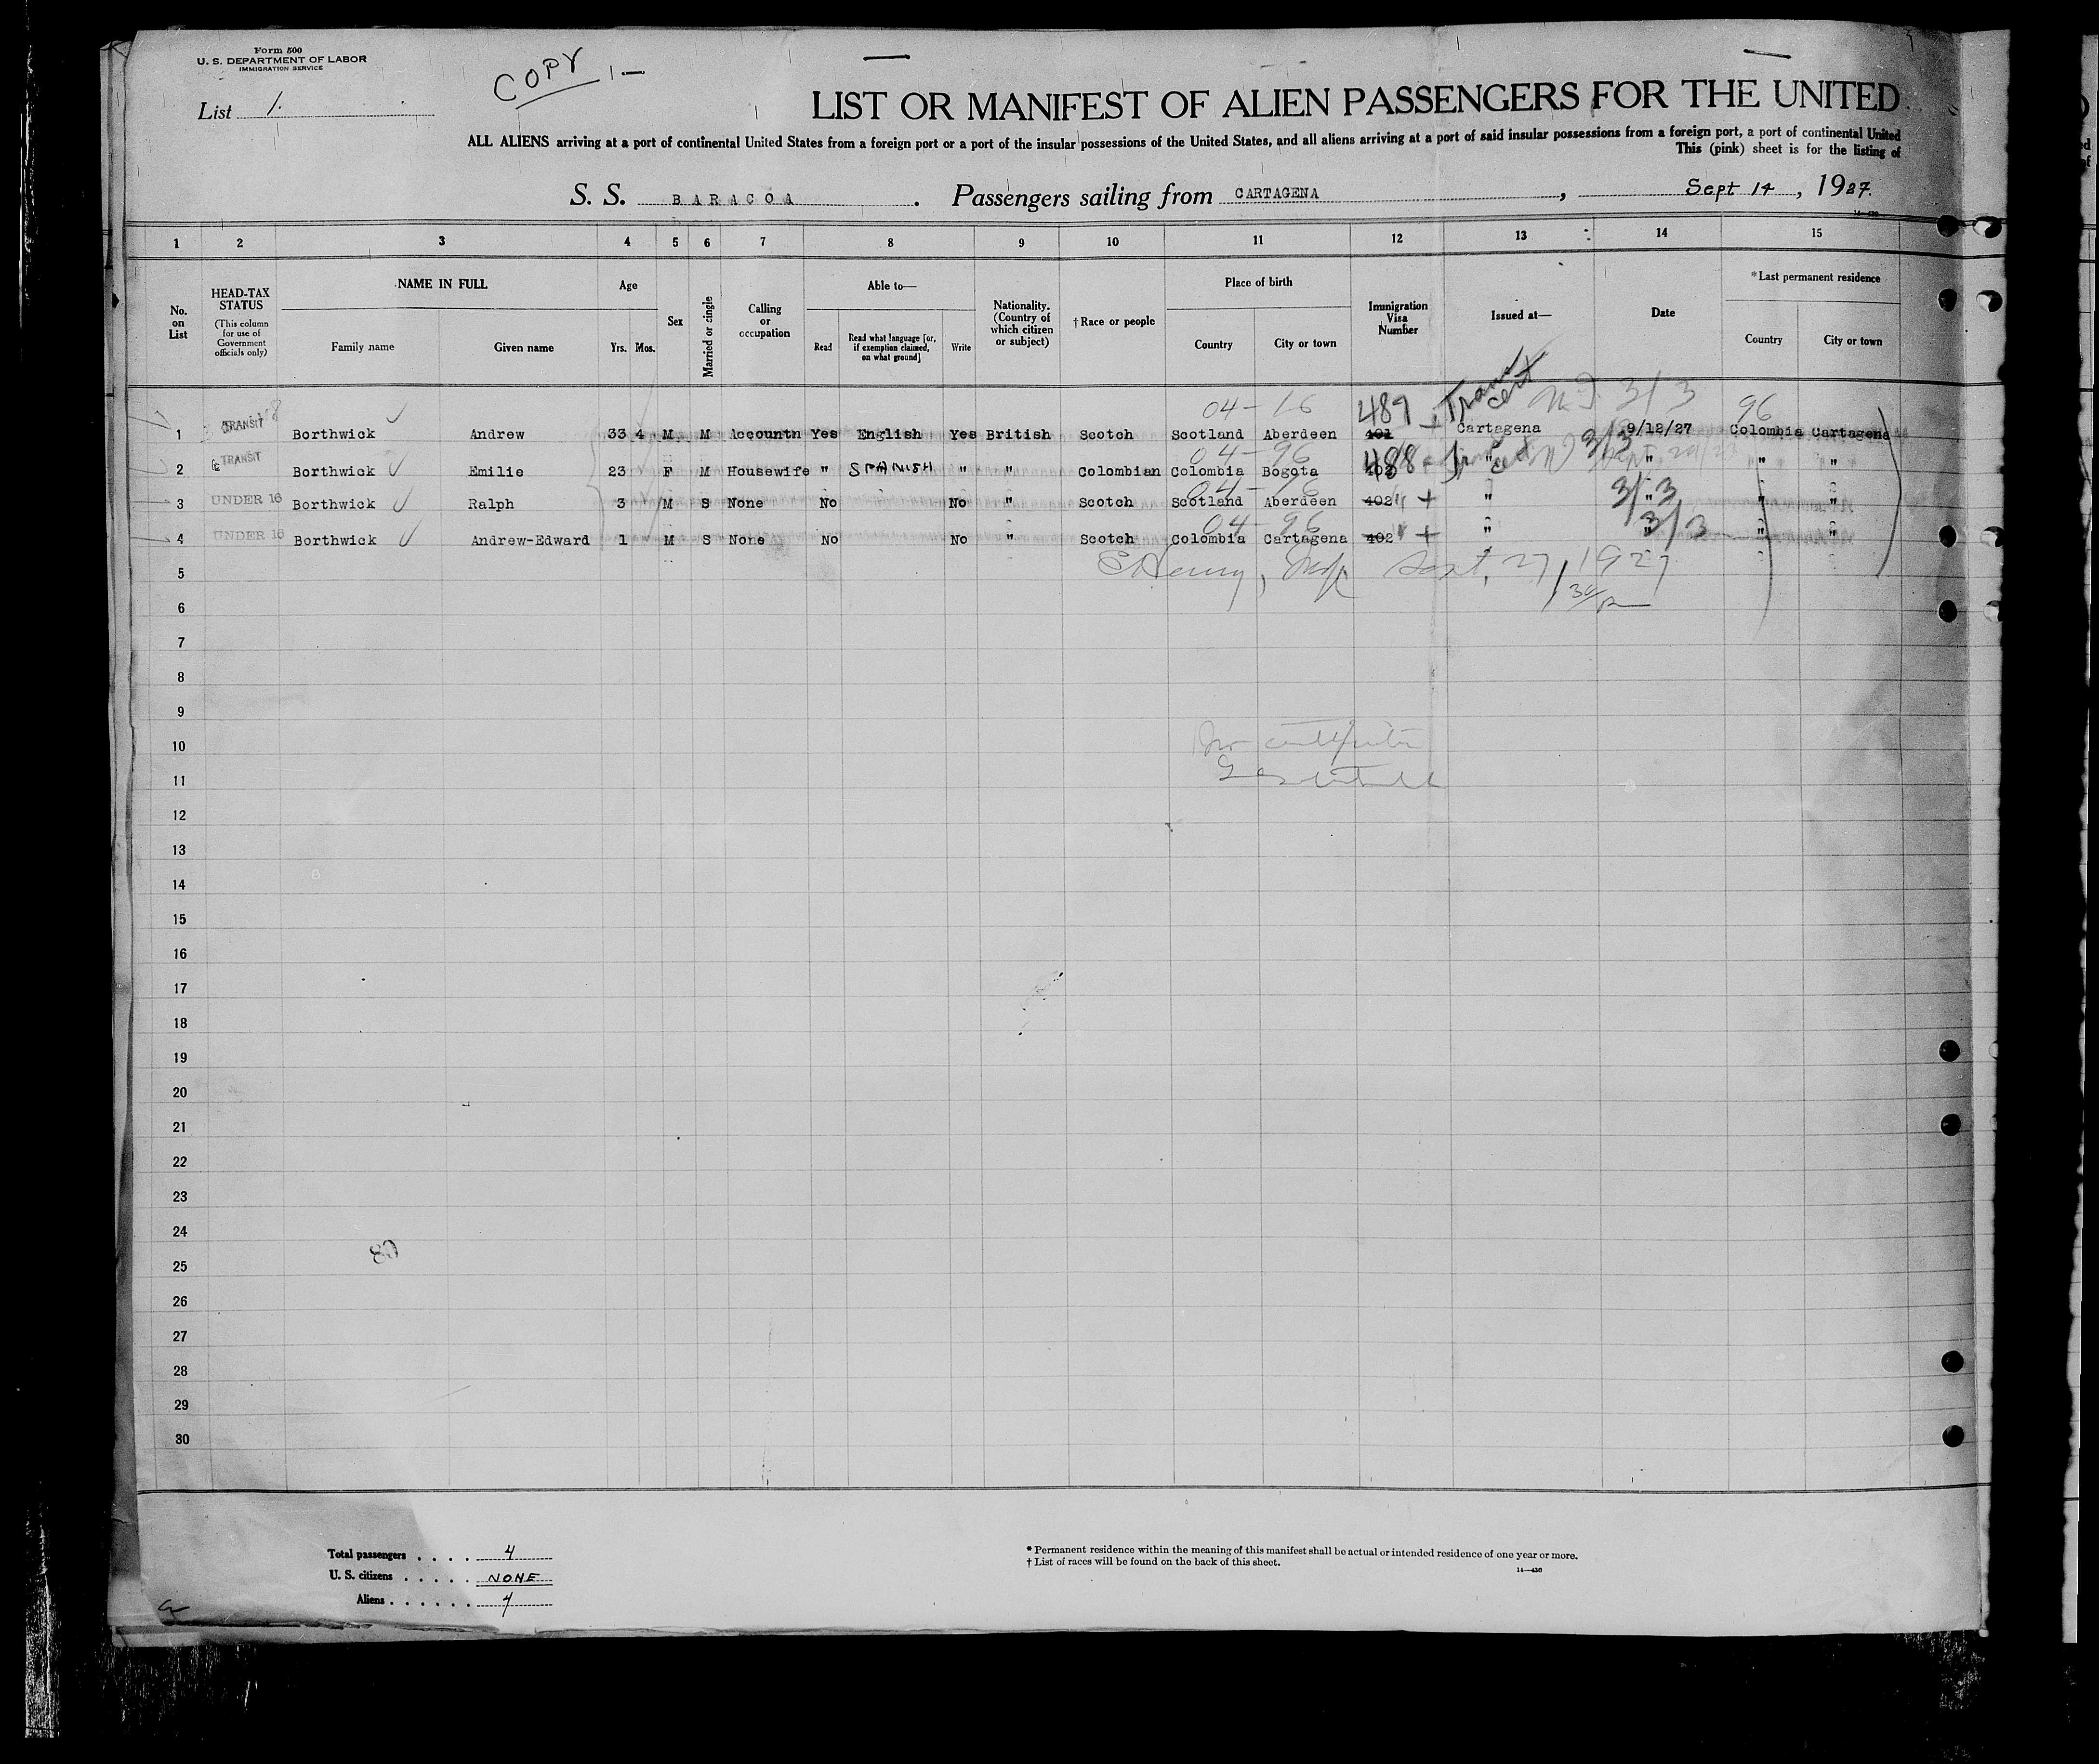 Form 500
U. S. DEPARTMENT OF LABOR
IMMIGRATION SERVICE
COPY
List 1.
LIST OR MANIFEST OF ALIEN PASSENGERS FOR THE UNITED
ALL ALIENS arriving at a port of continental United States from a foreign port or a port of the insular possessions of the United States, and all aliens arriving at a port of said insular possessions from a foreign port, a port of continental United
This (pink) sheet is for the listing of
S. S. BARACOA. Passengers sailing from CARTAGENA, Sept 14, 1927.
14—430
1 2 3 4 5 6 7 8 9 10 11 12 13 14 15
No. on List
HEAD-TAX STATUS
(This column for use of Government officials only)
NAME IN FULL
Family name Given name
Age
Yrs. Mos.
Sex
Married or single
Calling or occupation
Able to—
Read
Read what language [or, if exemption claimed, on what ground]
Write
Nationality. (Country of which citizen or subject)
†Race or people
Place of birth
Country City or town
Immigration Visa Number
Issued at—
Date
*Last permanent residence
Country City or town
04-16 489 Trans cert 3/3 96
1 TRANSIT Borthwick Andrew 33 4 M M Accountn Yes English Yes British Scotch Scotland Aberdeen 401 + Cartagena 9/12/27 Colombia Cartagena
04-96 488 cert 3/3
2 TRANSIT Borthwick Emilie 23 F M Housewife " SPANISH " " Colombian Colombia Bogota 402 " " " "
04-16
3 UNDER 16 Borthwick Ralph 3 M S None No No " Scotch Scotland Aberdeen 402 " + " 3/3 " " "
04-96
4 UNDER 16 Borthwick Andrew-Edward 1 M S None No No " Scotch Colombia Cartagena 402 " + " 3/3 " " "
5 Sept, 27, 1927
6
7
8
9
10
11
12
13
14
15
16
17
18
19
20
21
22
23
24
25
26
27
28
29
30
80
Total passengers . . . . 4
U. S. citizens . . . . . NONE
Aliens . . . . . . 4
* Permanent residence within the meaning of this manifest shall be actual or intended residence of one year or more.
† List of races will be found on the back of this sheet.
14—430